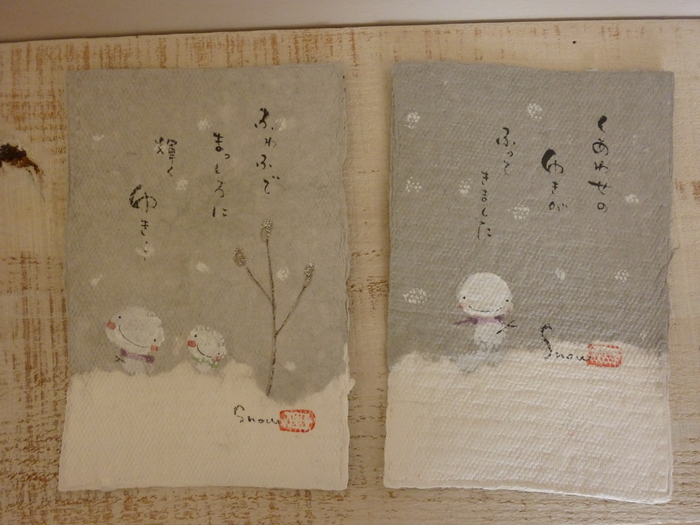 ふわふで
まっしろに
輝く
ゆき…
Snow
しあわせの
ゆきが
ふって
きました
Snow